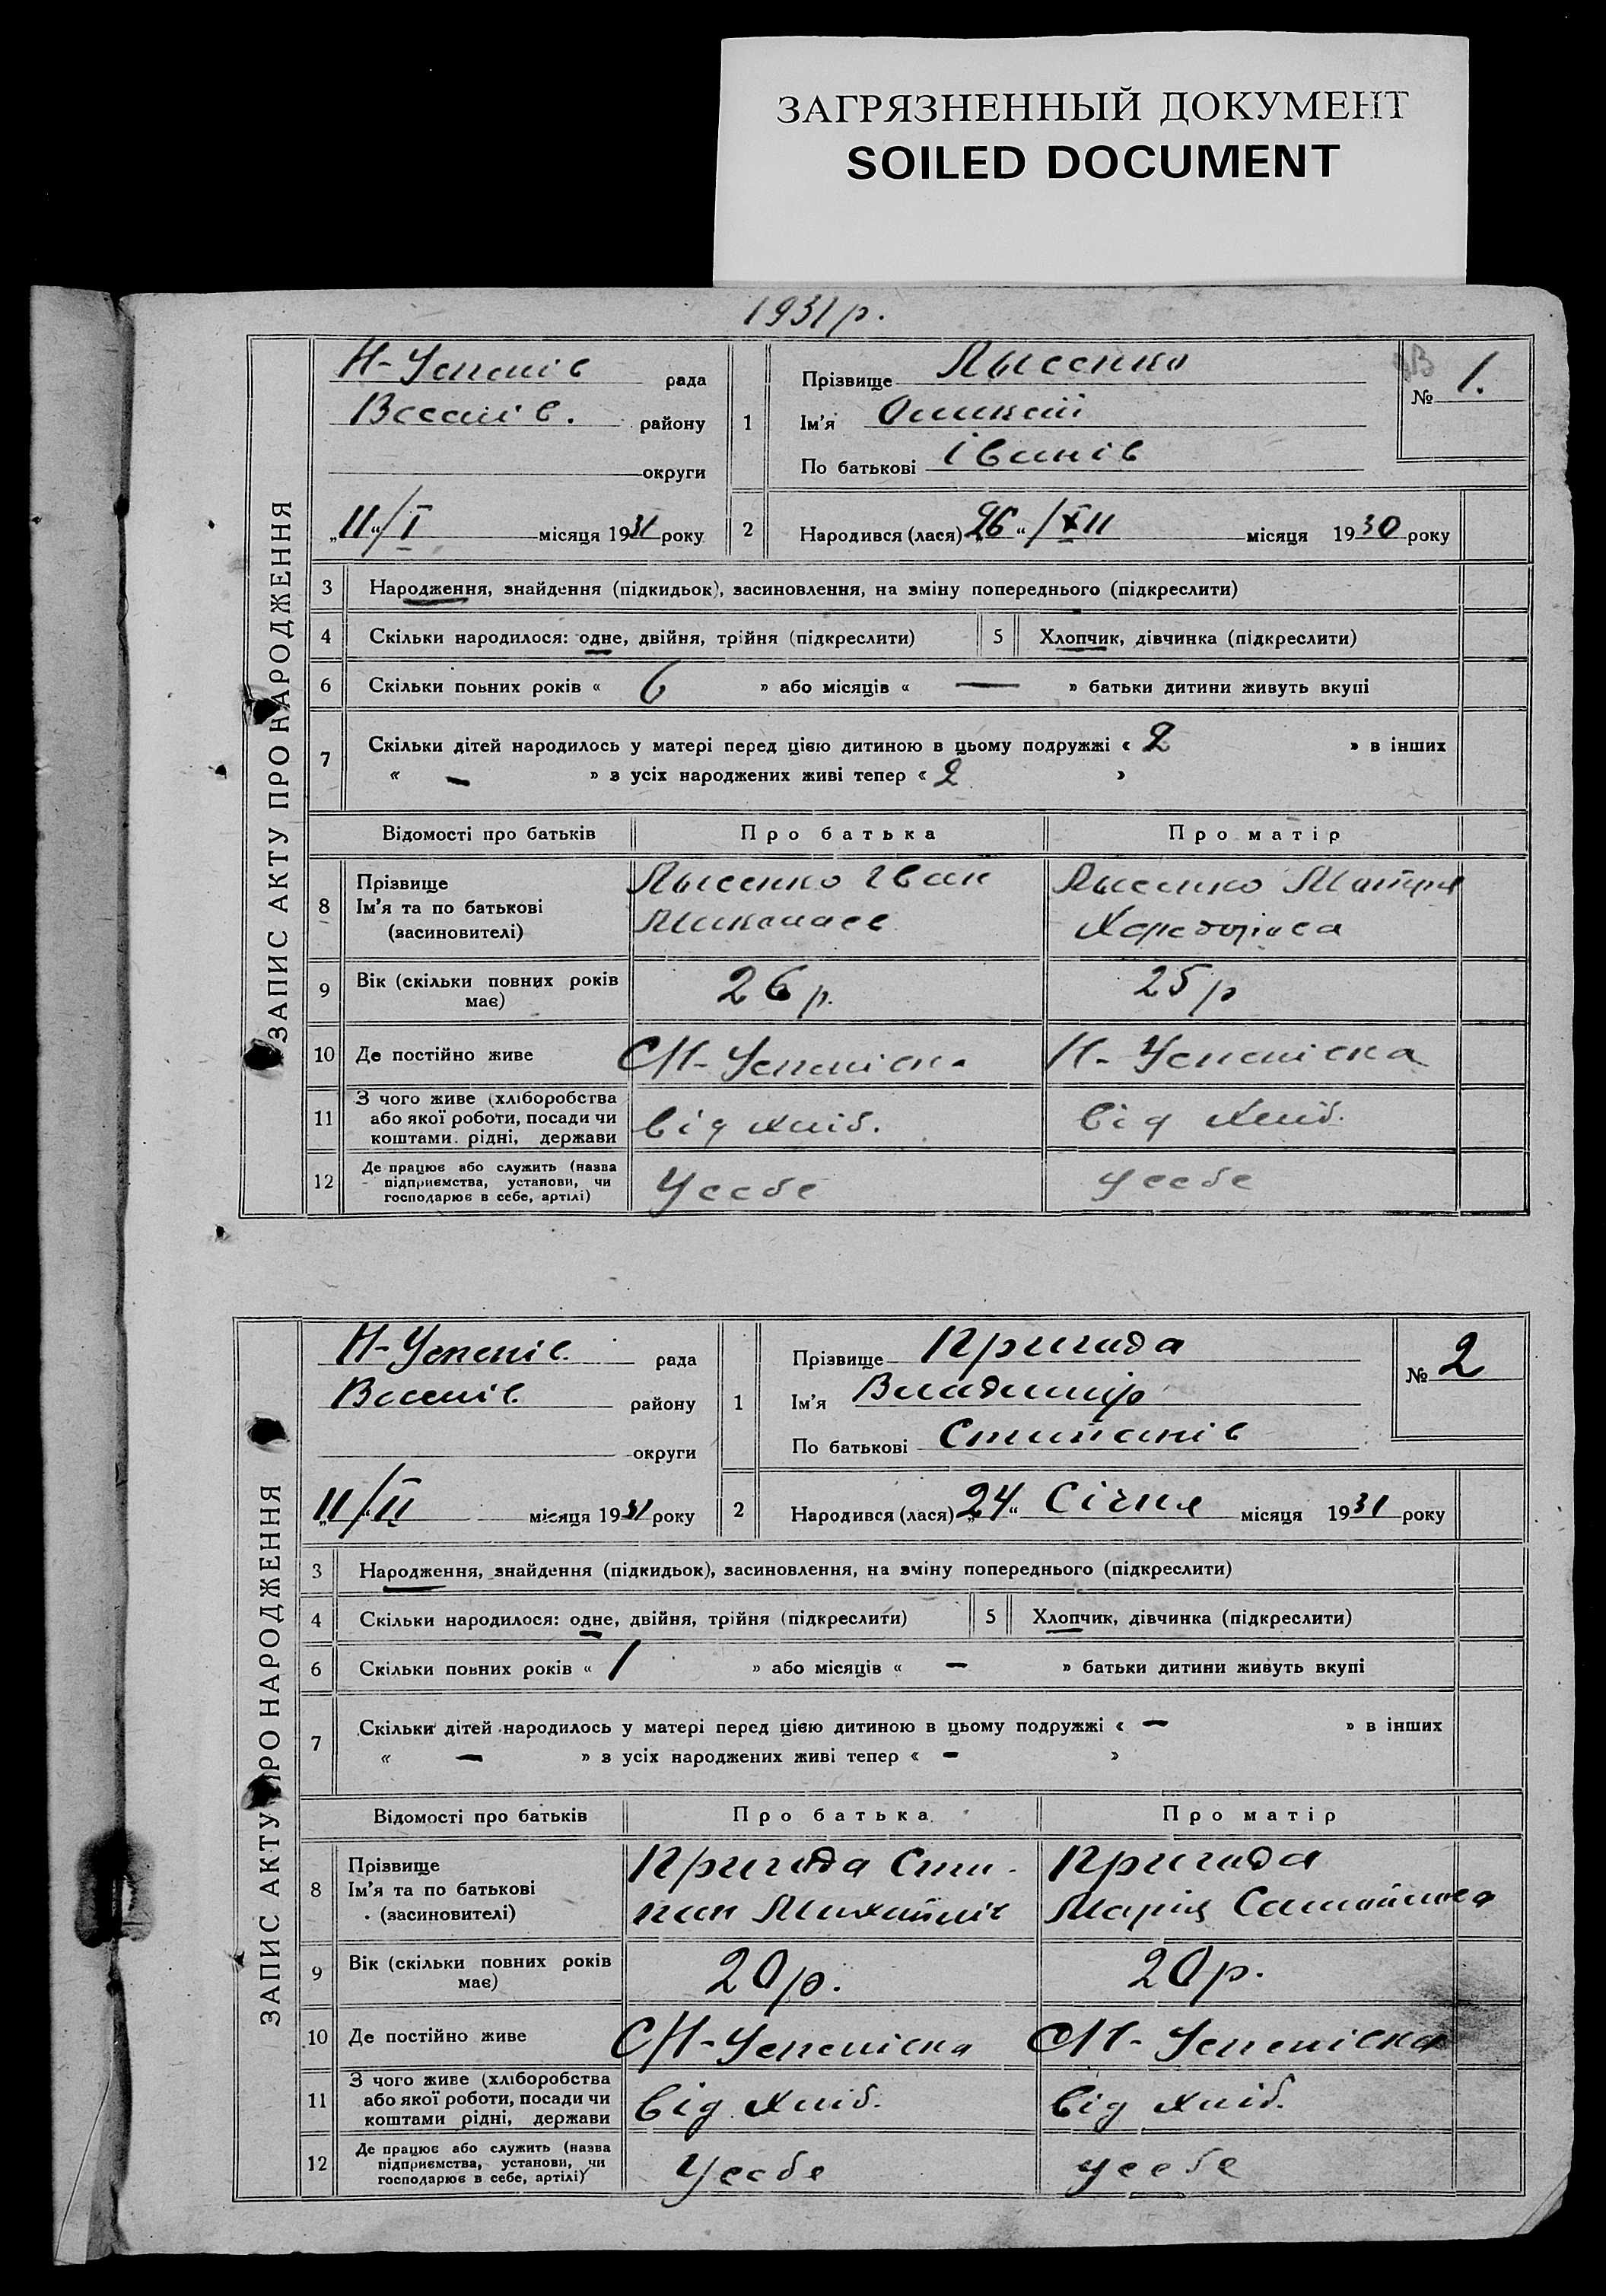 ЗАГРЯЗНЕННЫЙ ДОКУМЕНТ
SOILED DOCUMENT
1931 р.
ЗАПИС АКТУ ПРО НАРОДЖЕННЯ
Н-Успенів рада
району
округи
„11“/I місяця 1931 року
1 Прізвище Лысенко
Ім'я
По батькові Іванів
№ 1.
2 Народився (лася) „26“ /XII місяця 1930 року
3 Народження, знайдення (підкидьок), засиновлення, на зміну попереднього (підкреслити)
4 Скільки народилося: одне, двійня, трійня (підкреслити) 5 Хлопчик, дівчинка (підкреслити)
6 Скільки повних років « 6 » або місяців « — » батьки дитини живуть вкупі
7 Скільки дітей народилось у матері перед цією дитиною в цьому подружжі « 2 » в інших
« — » з усіх народжених живі тепер « 2 »
Відомості про батьків Про батька Про матір
8 Прізвище
Ім'я та по батькові
(засиновителі)
Лысенко Іван
Миколаев
Лысенко Мотря
9 Вік (скільки повних років
має)
26 р. 25 р
10 Де постійно живе СН-Успенівка Н-Успенівка
11 З чого живе (хліборобства
або якої роботи, посади чи
коштами рідні, держави
від хліб. від хліб.
12 Де працює або служить (назва
підприємства, установи, чи
господарює в себе, артілі)
Усебе усебе
ЗАПИС АКТУ ПРО НАРОДЖЕННЯ
Н-Успенів. рада
району
округи
„11“/II місяця 1931 року
1 Прізвище Пригода
Ім'я Владимір
По батькові Степанів
№ 2
2 Народився (лася) „24“ Січня місяця 1931 року
3 Народження, знайдення (підкидьок), засиновлення, на зміну попереднього (підкреслити)
4 Скільки народилося: одне, двійня, трійня (підкреслити) 5 Хлопчик, дівчинка (підкреслити)
6 Скільки повних років « 1 » або місяців « — » батьки дитини живуть вкупі
7 Скільки дітей народилось у матері перед цією дитиною в цьому подружжі « — » в інших
« — » з усіх народжених живі тепер « - »
Відомості про батьків Про батька Про матір
8 Прізвище
Ім'я та по батькові
(засиновителі)
Пригода Сти-
пан Михайлів
Пригода
Марія Самойлова
9 Вік (скільки повних років
має)
20 р. 20 р.
10 Де постійно живе СН-Успенівка СН-Успенівка
11 З чого живе (хліборобства
або якої роботи, посади чи
коштами рідні, держави
від хліб. від хліб.
12 Де працює або служить (назва
підприємства, установи, чи
господарює в себе, артілі)
Усебе усебе